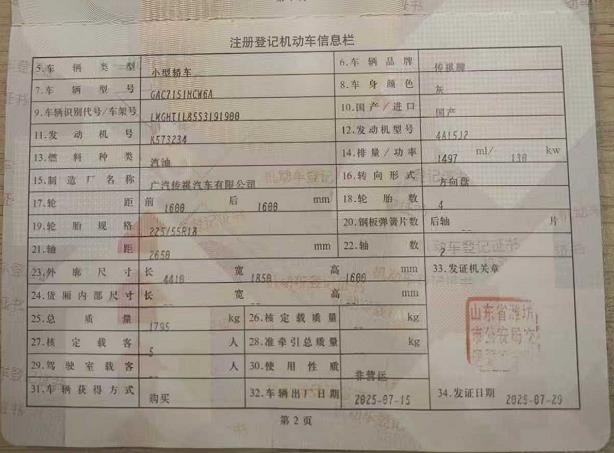 注册登记机动车信息栏
5.车辆类型 小型轿车 6.车辆品牌 传祺牌
7.车辆型号 GAC7151MCW6A 8.车身颜色 灰
9.车辆识别代号/车架号 LMGHT1L8553191900 10.国产/进口 国产
11.发动机号 K573234 12.发动机型号 4A15J2
13.燃料种类 汽油 14.排量/功率 1497 ml/ 130 kw
15.制造厂名称 广汽传祺汽车有限公司 16.转向形式 方向盘
17.轮距 前 1600 后 1600 mm 18.轮胎数 4
19.轮胎规格 225/55R18 20.钢板弹簧片数 后轴 -- 片
21.轴距 2650 mm 22.轴数 2
23.外廓尺寸 长 4410 宽 1850 高 1600 mm 33.发证机关章
24.货厢内部尺寸 长 -- 宽 -- 高 -- mm
25.总质量 1795 kg 26.核定载质量 -- kg
27.核定载客 5 人 28.准牵引总质量 -- kg
29.驾驶室载客 -- 人 30.使用性质 非营运
31.车辆获得方式 购买 32.车辆出厂日期 2025-07-15 34.发证日期 2025-07-29
山东省潍坊
市公安局交
第2页